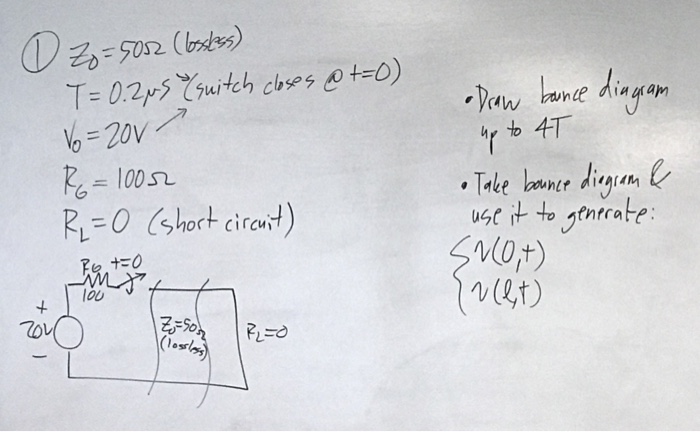 ① Z₀=50Ω (lossless)
T=0.2μs (switch closes @ t=0)
V₀=20V
R_G=100Ω
R_L=0 (short circuit)
R_G t=0
100
+
20V
-
Z₀=50Ω
(lossless)
R_L=0
• Draw bounce diagram
up to 4T
• Take bounce diagram &
use it to generate:
{ v(0,t)
{ v(ℓ,t)